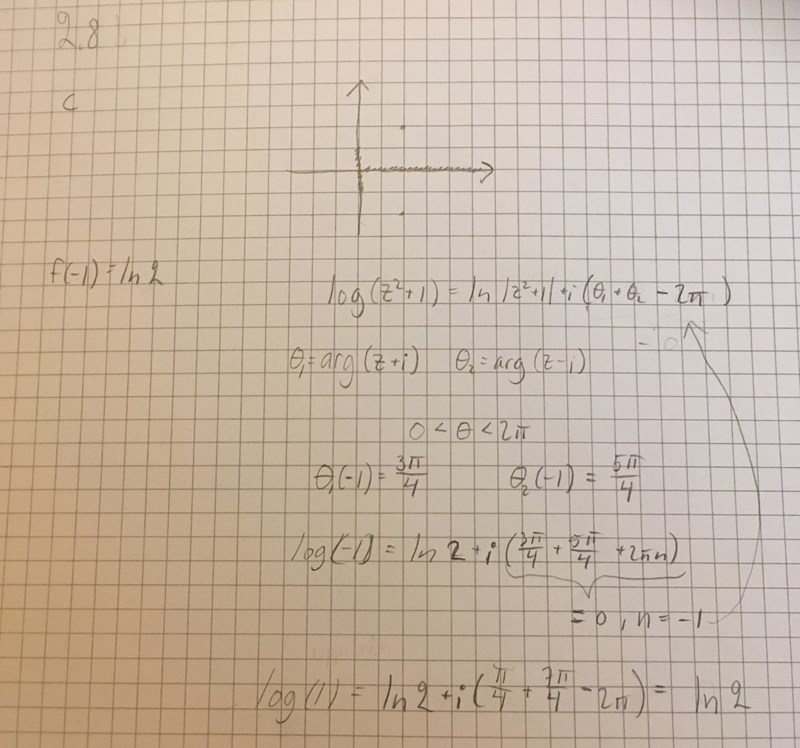 2.8
c
f(-1) = ln 2
log(z²+1) = ln |z²+1| + i (θ₁ + θ₂ - 2π)
θ₁ = arg(z+i) θ₂ = arg(z-i)
0 < θ < 2π
θ₁(-1) = 3π/4 θ₂(-1) = 5π/4
log(-1) = ln 2 + i (3π/4 + 5π/4 + 2πn)
= 0, n = -1
log(1) = ln 2 + i (π/4 + 7π/4 - 2π) = ln 2